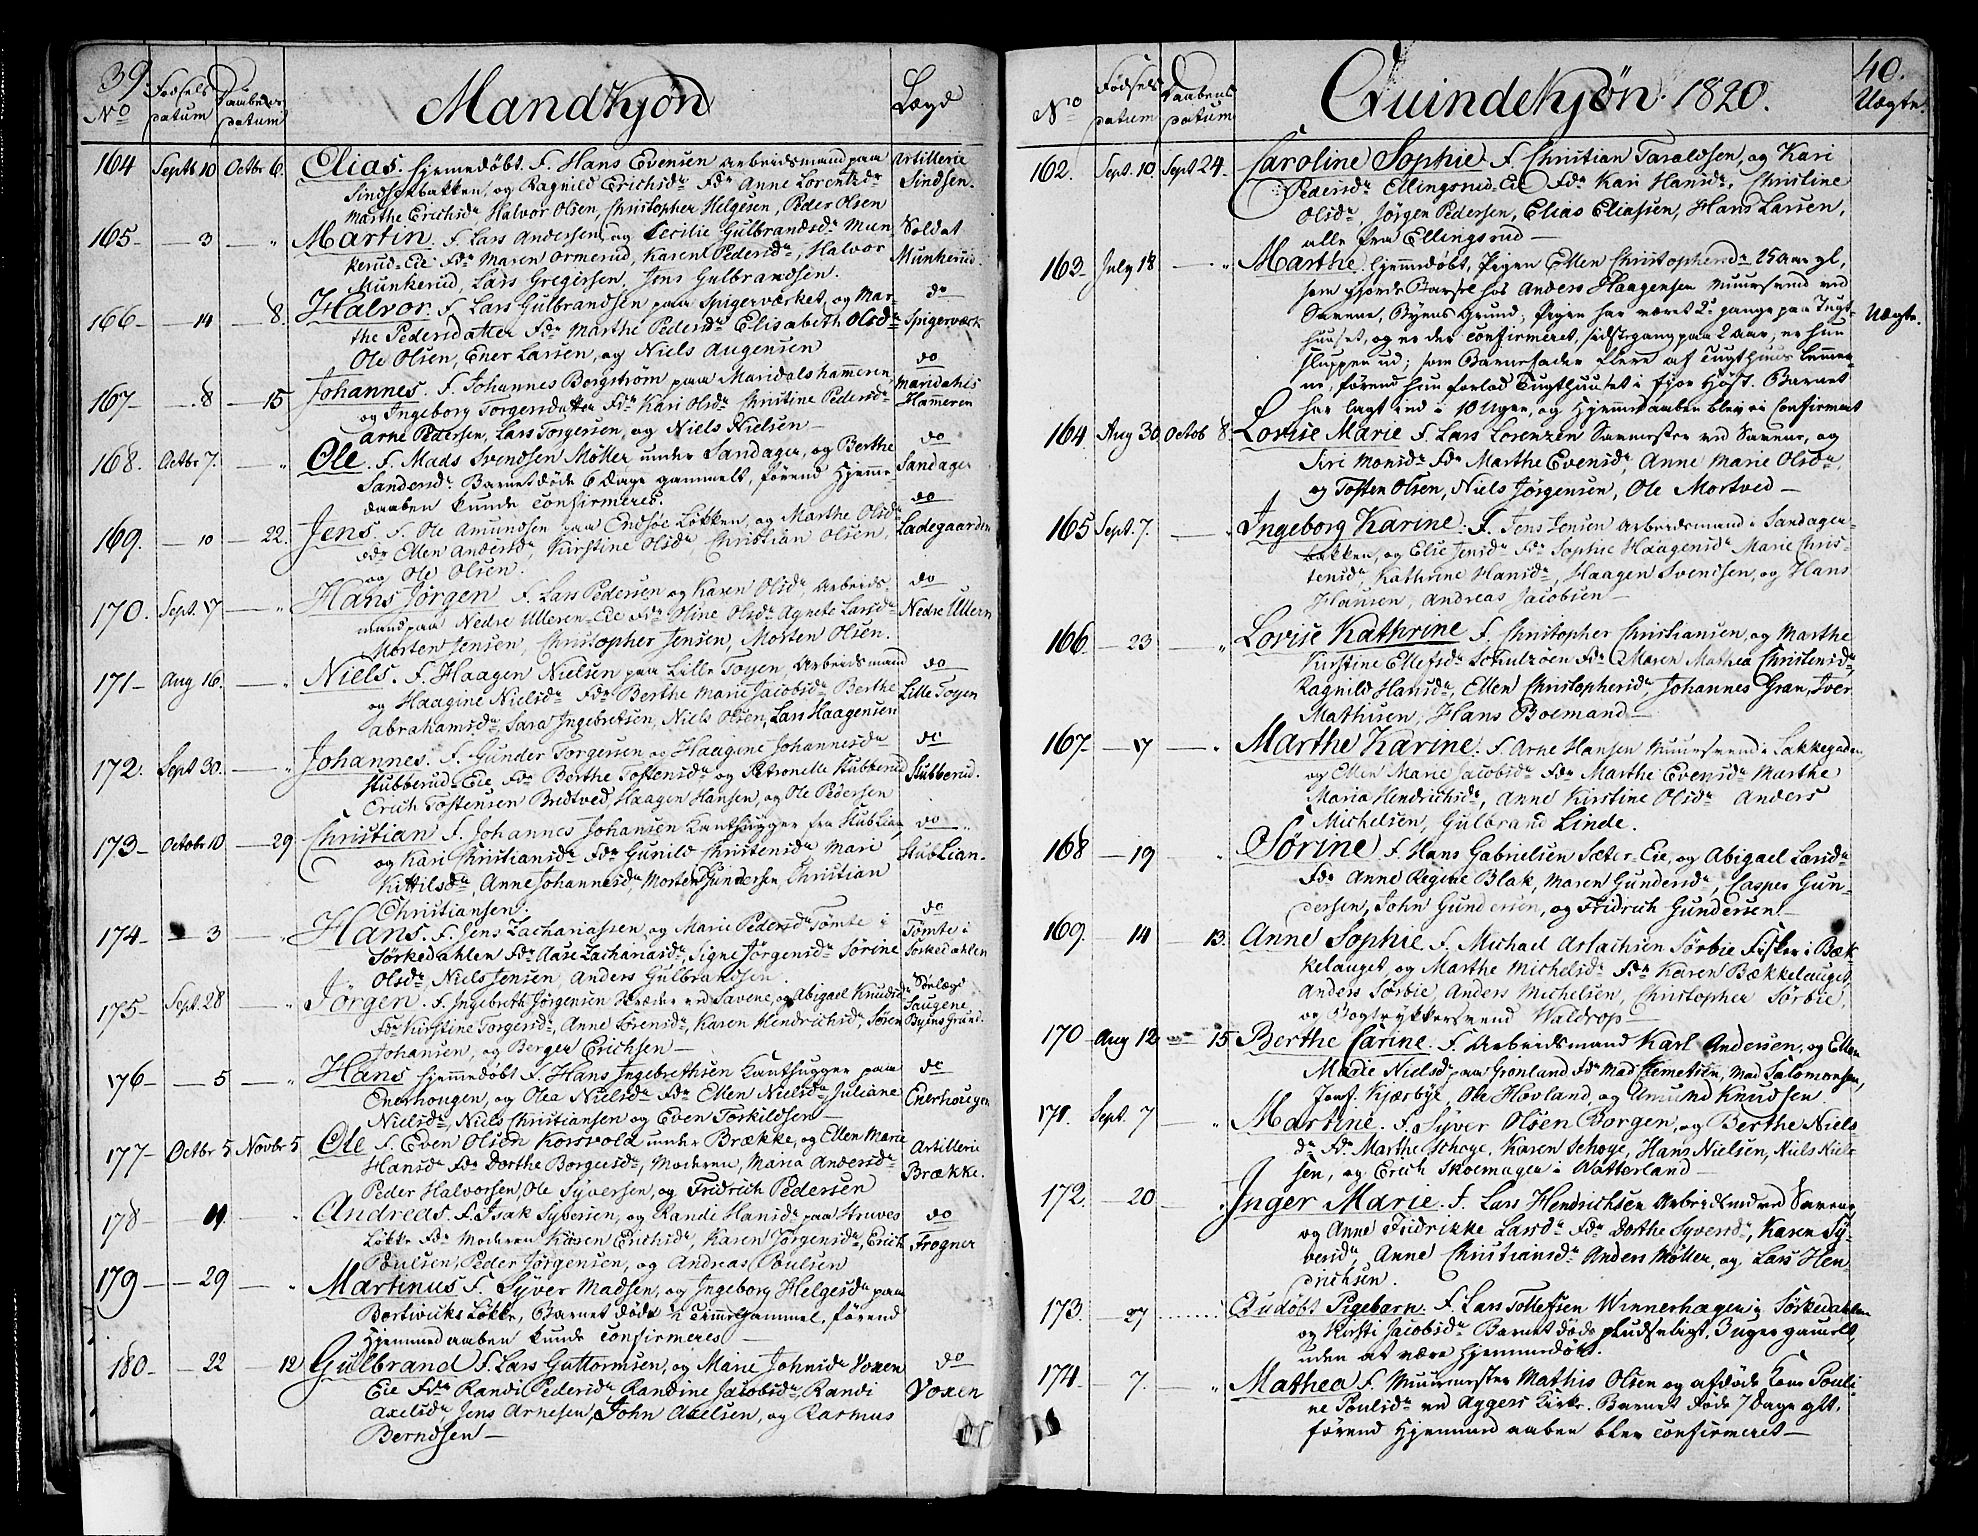 39.
No Fødsels datum Daabens datum Mandkjøn Lægd
164 Septb 10 Octbr 6. Elias. hjemmedøbt. F. Hans Evensen Arbeidsmand paa Artillerie
Sindsenbakken, og Ragnild Erichsdr Fdr Anne Lorentzdr Sindsen.
Marthe Erichsdr Halvor Olsen, Christopher Helgesen, Peder Olsen
165 – 3 – " Martin. F. Lars Andersen og Cecilie Gulbrandsdr Mun- Soldat
kerud-Eie Fdr Maren Ormerud, Karen Pedersdr, Halvor Munkerud.
Munkerud, Lars Gregersen, Jens Gulbrandsen.
166 – 14 – 8. Halvor. F. Lars Gulbrandsen paa Spigerværket, og Mar- do
the Pedersdatter Fdr Marthe Pedersdr Elisabeth Olsdr Spigerværk
Ole Olsen, Ener Larsen, og Niels Augensen
167 – 8 – 15 Johannes. F. Johannes Borgstrøm paa Maridalshameren, do Maridahls
og Ingeborg Torgersdatter Fdr Kari Olsdr Christine Pedersdr Hammeren
Arne Pedersen, Lars Torgersen, og Niels Nielsen –
168. Octbr 7. – " Ole. F. Mads Svendsen Møller under Sandager, og Berthe do
Sandersdr Barnet døde 6 Dage gammelt, førend Hjemme- Sandager
daaben kunde confirmeres.
169. – 10 – 22. Jens F. Ole Amundsen paa Endsøe Løkken, og Marthe Olsdr do Ladegaarden
Fdr Ellen Andersdr, Kirstine Olsdr, Christian Olsen,
og Ole Olsen.
170. Sept. 17 – " Hans Jørgen F. Lars Pedersen og Karen Olsdr, Arbeids- do
mand paa Nedre Ulleren-Eie Fdr Oline Olsdr Agnete Larsdr Nedre Ullern
Morten Jensen, Christopher Jensen, Morten Olsen.
171 – Aug 16. – " Niels. F. Haagen Nielsen paa Lille Tøyen, Arbeidsmand do
og Haagine Nielsdr Fdr Berthe Marie Jacobsdr Berthe Lille Tøyen
Abrahamsdr Sara Ingebretsen, Niels Olsen, Lars Haagensen
172. Sept 30. – " Johannes. F. Gunder Torgersen og Haagine Johannesdr do
Stubberud-Eie Fdr Berthe Tostensdr og Petronelle Stubberud Stubberud.
Erich Tostensen Bredtved, Haagen Hansen, og Ole Pedersen
173 – Octobr 10 – 29 Christian F. Johannes Johansen Kanthugger fra Stublian do
og Kari Christiansdr Fdr Gunild Christensdr Mari Stublian.
Kittilsdr, Anne Johannesdr, Morten Gundersen, Christian
Christiansen.
174 – 3 " Hans. F. Jens Zachariassen, og Marie Pedersdr Tømte i do Tømte i
Sørkedahlen Fdr Aase Zachariasdr, Signe Jørgensdr Sørine Sørkedahlen
Olsdr, Niels Jensen, Anders Gulbrandsen.
175 – Sept. 28 " Jørgen. F. Ingebreth Jørgensen ved Savene, og Abigael Knudsdr Sølægd Saugene
Fdr Kirstine Torgersdr, Anne Sørensdr, Karen Hendrichsdr, Søren Byens Grund
Johansen, og Berger Erichsen –
176 – 5 – " Hans hjemmedøbt F. Hans Ingebrethsen Kanthugger paa do
Enerhougen, og Olea Nielsdr Fdr Ellen Nielsdr Juliane Enerhougen
Nielsdr, Niels Christiansen og Even Torkildsen –
177 – Octbr 5 Novbr 5 Ole F. Even Olsen Korsvold under Brække, og Ellen Marie Artillerie
Hansdr Fdr Dorthe Borgersdr, Moderen, Maria Andersdr Brække.
Peder Halvorsen, Ole Syversen, og Fridrich Pedersen
178 – 11. " Andreas. F. Isak Syversen, og Randi Hansdr paa Struves do
Løkke Fdr Moderen Karen Erichsdr, Karen Jørgensdr, Erich Frogner
Poulsen, Peder Jørgensen, og Andreas Poulsen
179 – 29 – " Martinus F. Syver Madsen, og Ingeborg Helgesdr paa
Bortiviks Løkke, Barnet døde Gammel, førend
Hjemmedaaben kunde confirmeres –
180 – 22 – 12 Gulbrand F. Lars Guttormsen, og Marie Johnsdr Voxen do
Eie Fdr Randi Pedersdr Randine Jacobsdr, Randi Voxen
Axelsdr, Jens Arnesen, John Axelsen, og Rasmus
Berndsen –
40.
No Fødsels datum Daabens datum Quindekjøn. 1820. Uægte.
162. Sept. 10 Sept 24. Caroline Sophie F. Christian Taraldsen, og Kari
Pedersdr Ellingsrud-Eie Fdr Kari Hansdr, Christine
Olsdr, Jørgen Pedersen, Elias Eliassen, Hans Larsen,
alle fra Ellingsrud –
163. July 18 – " Marthe. hjemmedøbt, Pigen Ellen Christophersdr 25 aar gl,
som gjorde Barsel hos Anders Haagensen Muursvend ved
Savene, Byens Grund; Pigen har været 2de gange paa Tugt- Uægte.
huuset, og er der confirmeret, sidste gang paa 2 aar, er hun
sluppen ud; som Barnefader blev af Tugthuus lemme-
ne, førend hun forlod Tugthuuset i fjor Høst. Barnet
har lagt ind i 10 Uger, og Hjemmedaaben blev ei Confirmert
164 Aug 30. Octob 8. Lovise Marie F. Lars Lorenzen Savmester ved Savene, og
Siri Monsdr Fdr Marthe Evensdr, Anne Marie Olsdr,
og Tosten Olsen, Niels Jørgensen, Ole Mortved –
165 Sept. 7. – " Ingeborg Karine. F. Jens Jensen Arbeidsmand i Sandager-
bakken, og Elie Jensdr Fdr Sophie Haagensdr Marie Chris-
tensdr, Kathrine Hansdr, Haagen Svendsen, og Hans
Hansen, Andreas Jacobsen –
166. – 23 – " Lovise Kathrine F. Christopher Christiansen, og Marthe
Kirstine Ellefsdr Schulzøen Fdr Maren Mathea Christensdr,
Ragnild Hansdr, Ellen Christophersdr, Johannes Gran, Iver
Mathisen, Hans Boemand –
167 – 17 – " Marthe Karine. F. Arne Hansen Muursvend i Lakkegaden
og Ellen Marie Jacobsdr Fdr Marthe Evensdr Marthe
Maria Hendrichsdr, Anne Kirstine Olsdr Anders
Michelsen, Gulbrand Linde.
168 – 19 " Sørine F. Hans Gabrielsen Sæter-Eie, og Abigael Larsdr
Fdr Anne Regine Blak, Maren Gundersdr, Casper Gun-
dersen, John Gundersen, og Fridrich Gundersen. –
169. – 14 – 13. Anne Sophie F. Michael Aslachsen Sørbie Fisker i Bæk-
kelauget, og Marthe Michelsdr Fdr Karen Bækkelauget,
Anders Sørbie, Anders Michelsen, Christopher Sørbie,
og Bogtrykkersvend Waldrop –
170 Aug 12 – 15 Berthe Carine. F. Arbeidsmand Karl Andersen, og Ellen
Marie Nielsdr paa Grønland Fdr Mad Mad Salomonsen,
Jomf. Kjærbye, Ole Hovland, og Amund Knudsen.
171. Sept. 7 " Martine. F. Syver Olsen Borgen, og Berthe Niels
dr Fdr Marthe Schøye, Karen Schøye, Hans Nielsen, Niels Niel-
sen, og Erich Skoemager i Watterland –
172. – 20 – " Inger Marie. F. Lars Hendrichsen Arbeidsmd ved Savene,
og Anne Fridrikke Larsdr Fdr Dorthe Syversdr, Karen Sy-
versdr, Anne Christiansdr Anders Møller, og Lars Hen-
drichsen.
173. – 27 ....... Qudøbt Pigebarn. F. Lars Tollefsen Winnerhagen i Sørkedahlen
og Kirsti Jacobsdr Barnet døde pludseligt, 3 uger gamelt,
uden at være Hjemmedøbt.
174 – 7. – " Mathea F. Muurmester Mathis Olsen og afdøde Kone Pouli
ne Poulsdr ved Aggers Kirke. Barnet døde 7 Dage glt.
førend Hjemmedaaben blev confirmeret –